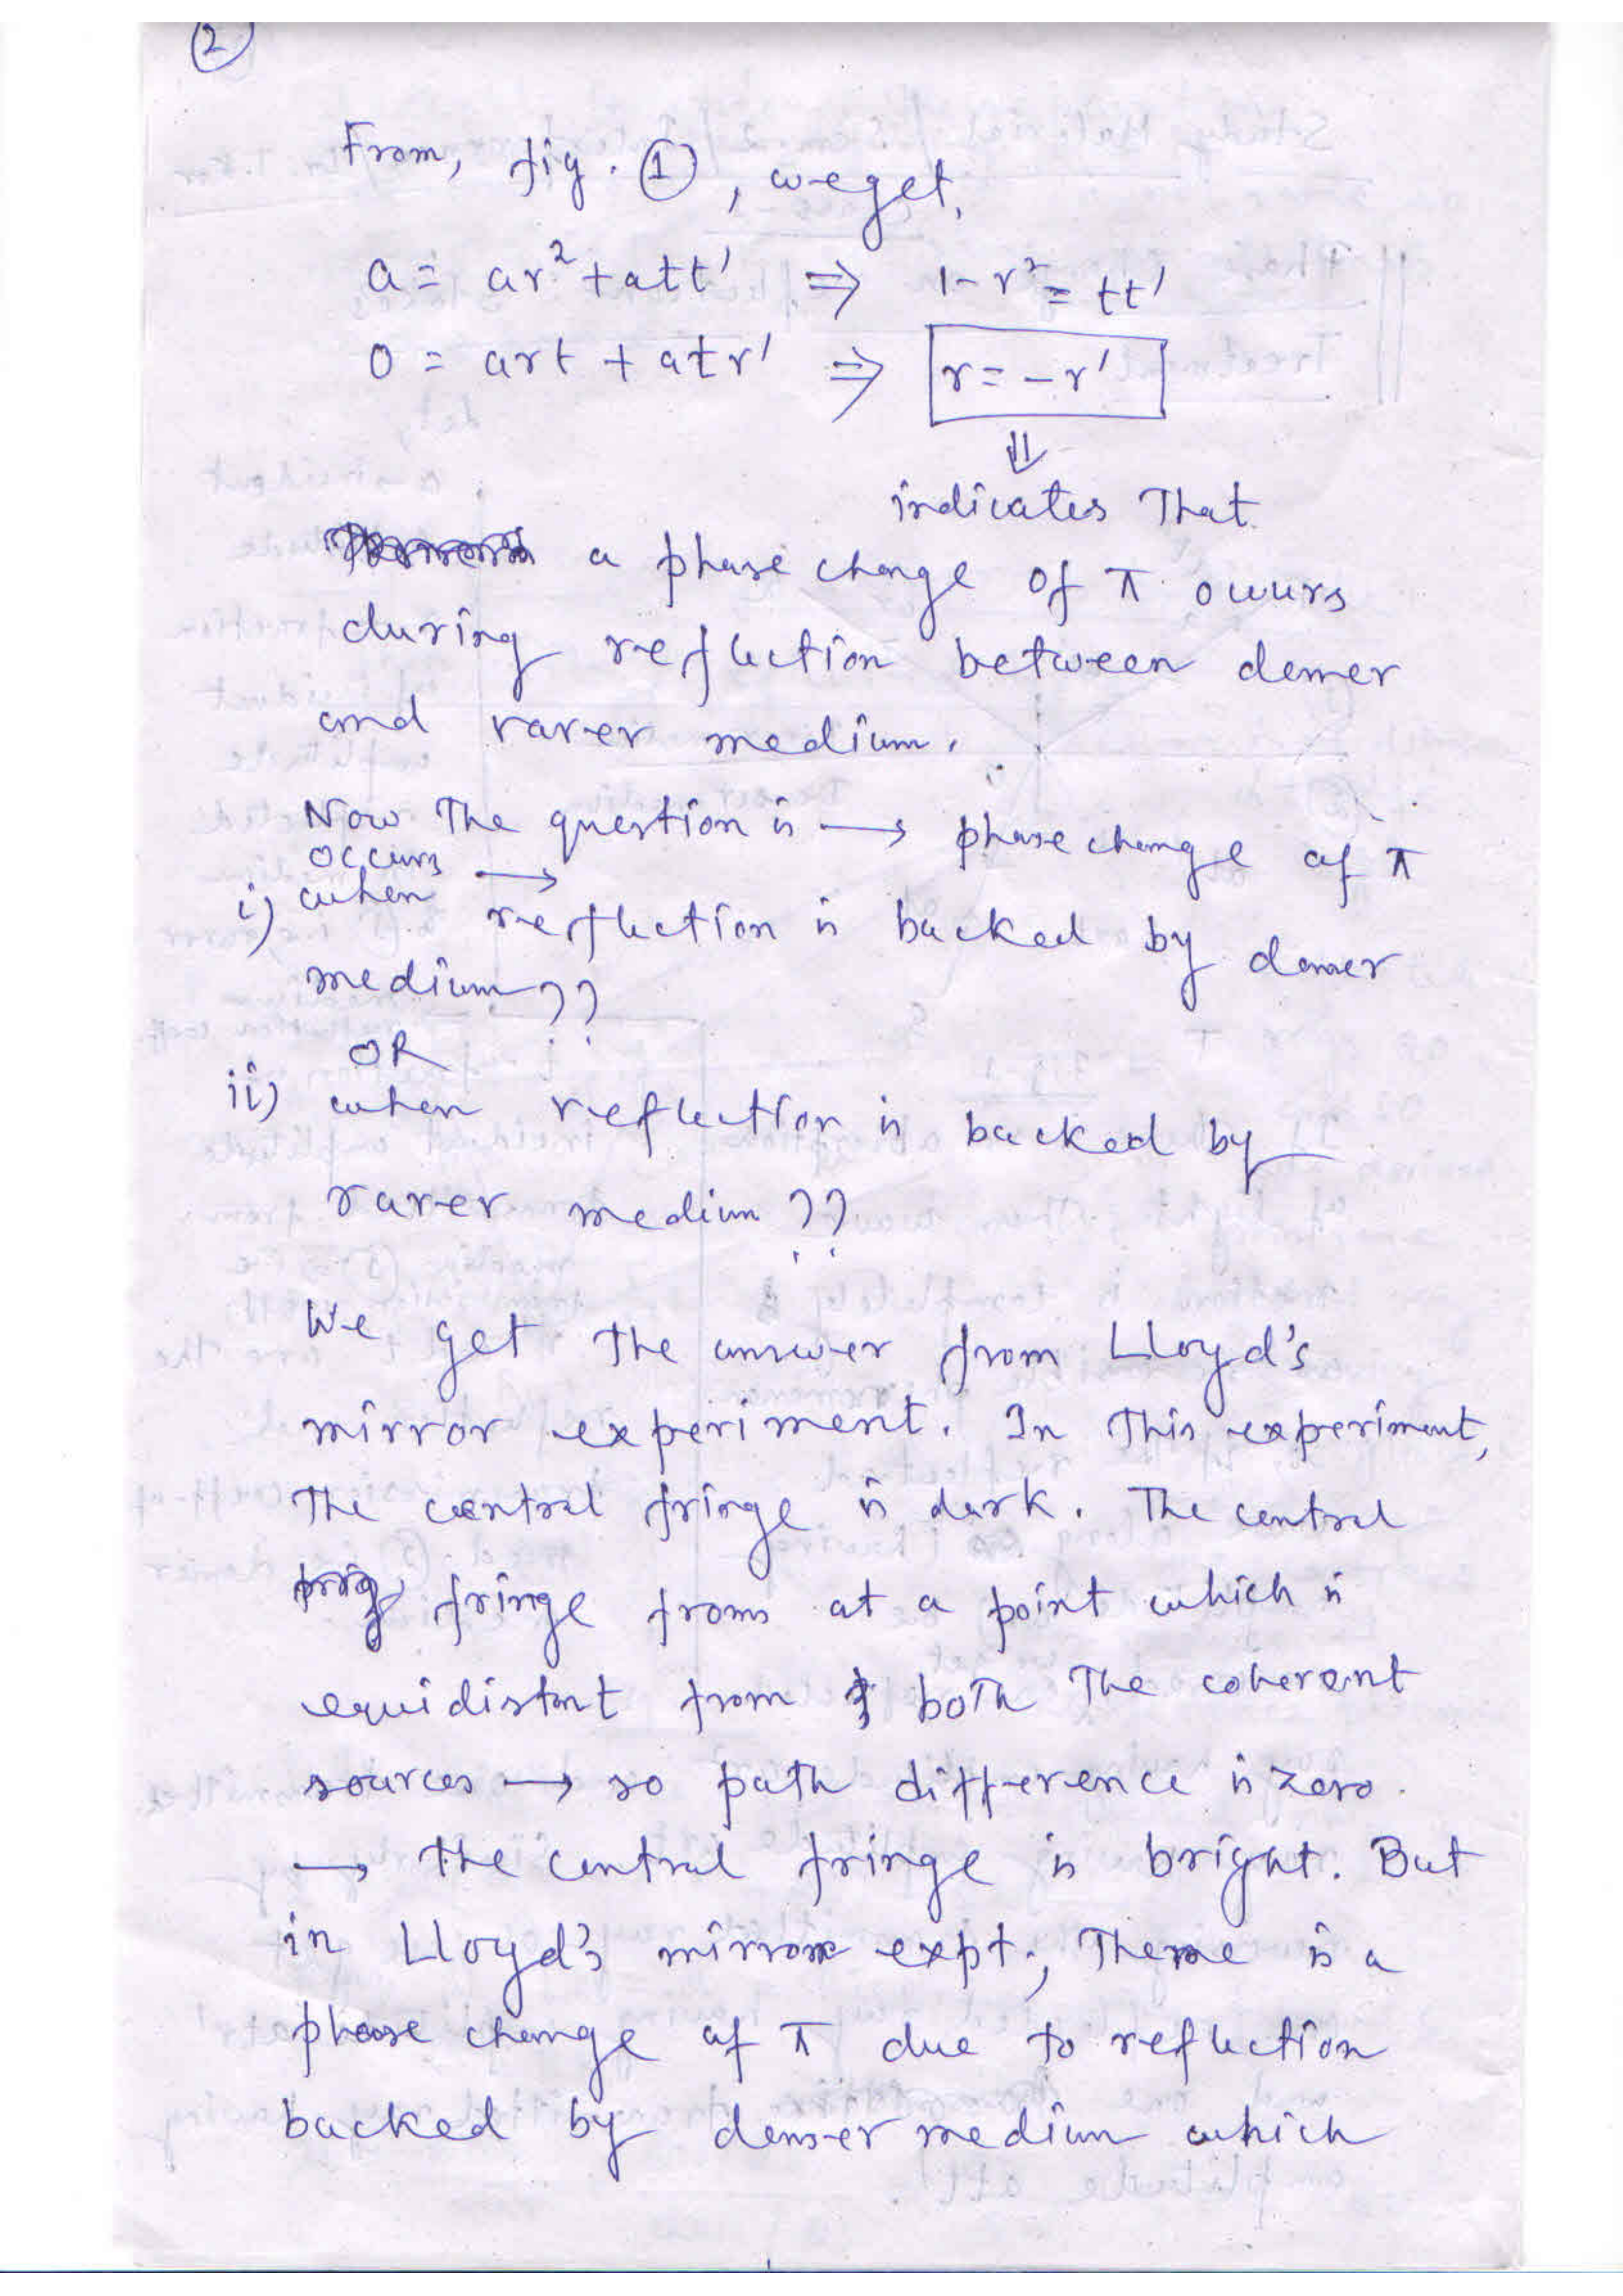 2
From, fig. ①, we get,
a = ar² + att' ⇒ 1-r² = tt'
0 = art + atr' ⇒ r = -r'
⇓
indicates That
a phase change of π occurs
during reflection between denser
and rarer medium.
Now The question is → phase change of π
occurs →
i) when reflection is backed by denser
medium??
OR
ii) when reflection is backed by
rarer medium??
We get The answer from Lloyd's
mirror experiment. In This experiment,
The central fringe is dark. The central
fringe froms at a point which is
equidistant from both The coherent
sources → so path difference is zero.
→ the central fringe is bright. But
in Lloyd's mirror expt., There is a
phase change of π due to reflection
backed by denser medium which